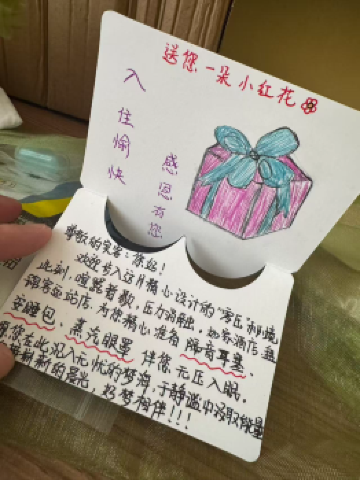 送您一朵小红花
入住愉快
感恩有您
尊敬的宾客:您好!
欢迎步入这片精心设计的"零压"和境
此刻,喧嚣暂歇,压力消融,
为您精心准备 隔音耳塞、
安睡包、蒸汽眼罩 伴您无压入眠.
愿您在此坠入无忧的梦海,于静谧中汲取能量
好梦相伴!!!